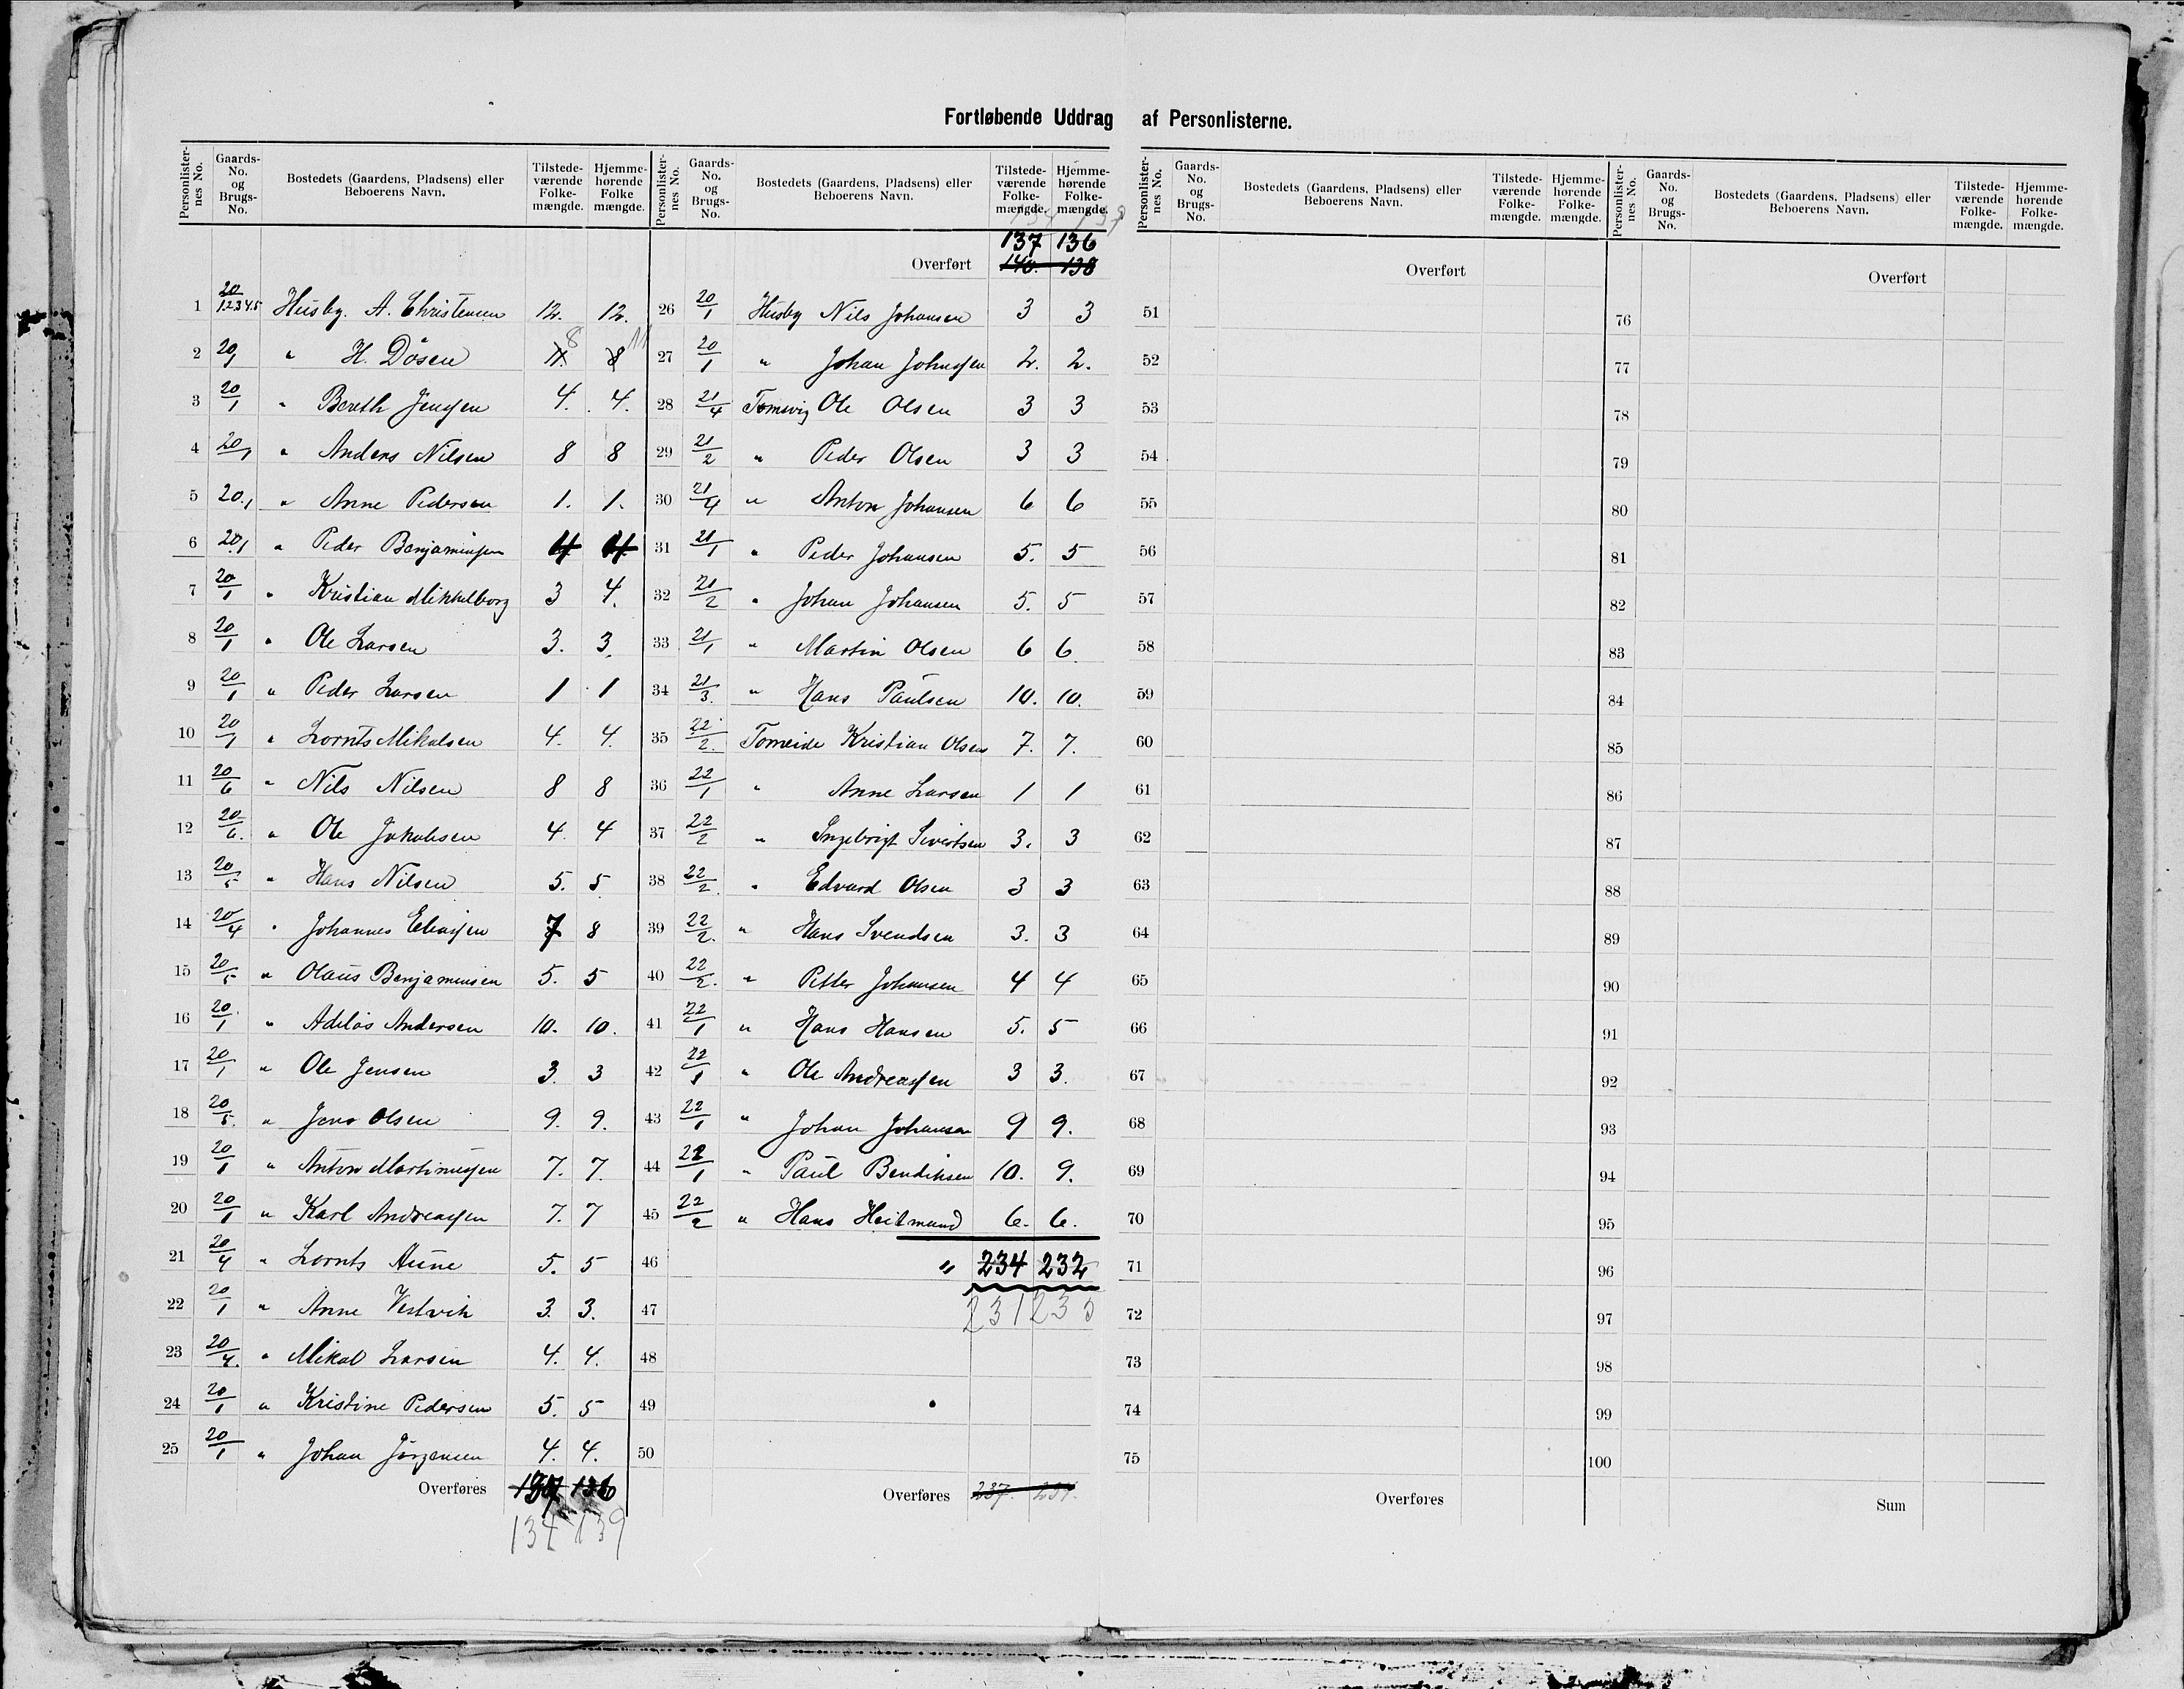 Fortløbende Uddrag af Personlisterne.
Personlisternes No. Gaards-No. og Brugs-No. Bostedets (Gaardens, Pladsens) eller Beboerens Navn. Tilstedeværende Folkemængde. Hjemmehørende Folkemængde.
1 20/1.2.3.4.5 Husby. A. Christensen 12. 12.
2 20/1 " H. Dösen 11. 8 8 11
3 20/1 " Bereth Jensen 4. 4.
4 20/1 " Anders Nilsen 8 8
5 20/1 " Anne Pedersen 1. 1.
6 20/1 " Peder Benjaminsen 4 4
7 20/1 " Kristian Mikkelborg 3 4.
8 20/1 " Ole Larsen 3. 3.
9 20/1 " Peder Larsen 1 1
10 20/1 " Lornts Mikalsen 4. 4.
11 20/6 " Nils Nilsen 8 8
12 20/6. " Ole Jakobsen 4. 4
13 20/5 " Hans Nilsen 5. 5
14 20/4 " Johannes Eliassen 7 8
15 20/5 " Olaus Benjaminsen 5. 5
16 20/1 " Adelös Andersen 10. 10.
17 20/1 " Ole Jensen 3. 3
18 20/5. " Jens Olsen 9. 9.
19 20/1 " Anton Martinussen 7. 7.
20 20/1 " Karl Andreassen 7. 7
21 20/4 " Lornts Aune 5. 5
22 20/1 " Anne Vestvik 3. 3.
23 20/4. " Mikal Larsen 4. 4.
24 20/1 " Kristine Pedersen 5. 5
25 20/1 " Johan Jörgensen 4. 4.
Overføres 137 136
134 139
Personlisternes No. Gaards-No. og Brugs-No. Bostedets (Gaardens, Pladsens) eller Beboerens Navn. Tilstedeværende Folkemængde. Hjemmehørende Folkemængde.
134 139
137 136
Overført 140. 138
26 20/1 Husby Nils Johansen 3 3
27 20/1 " Johan Johnssen 2. 2.
28 21/4 Tomvig Ole Olsen 3 3
29 21/2 " Peder Olsen 3 3
30 21/4 " Anton Johansen 6 6
31 21/1 " Peder Johansen 5. 5
32 21/2 " Johan Johansen 5. 5
33 21/1 " Martin Olsen 6 6
34 21/3. " Hans Paulsen 10. 10.
35 22/2. Tomeide Kristian Olsen 7. 7.
36 22/1 " Anne Larsen 1 1
37 22/2 " Ingebrigt Sivertsen 3. 3
38 22/2. " Edvard Olsen 3 3
39 22/2. " Hans Svendsen 3. 3
40 22/2. " Petter Johansen 4 4
41 22/1 " Hans Hansen 5. 5
42 22/1 " Ole Andreassen 3 3.
43 22/1 " Johan Johansen 9 9.
44 22/1 " Paul Bendiksen 10. 9.
45 22/2 " Hans Heitmand 6. 6.
46 " 234 232
47 231 235
48
49
50
Overføres 237. 234.
Personlisternes No. Gaards-No. og Brugs-No. Bostedets (Gaardens, Pladsens) eller Beboerens Navn. Tilstedeværende Folkemængde. Hjemmehørende Folkemængde.
Overført
51
52
53
54
55
56
57
58
59
60
61
62
63
64
65
66
67
68
69
70
71
72
73
74
75
Overføres
Personlisternes No. Gaards-No. og Brugs-No. Bostedets (Gaardens, Pladsens) eller Beboerens Navn. Tilstedeværende Folkemængde. Hjemmehørende Folkemængde.
Overført
76
77
78
79
80
81
82
83
84
85
86
87
88
89
90
91
92
93
94
95
96
97
98
99
100
Sum